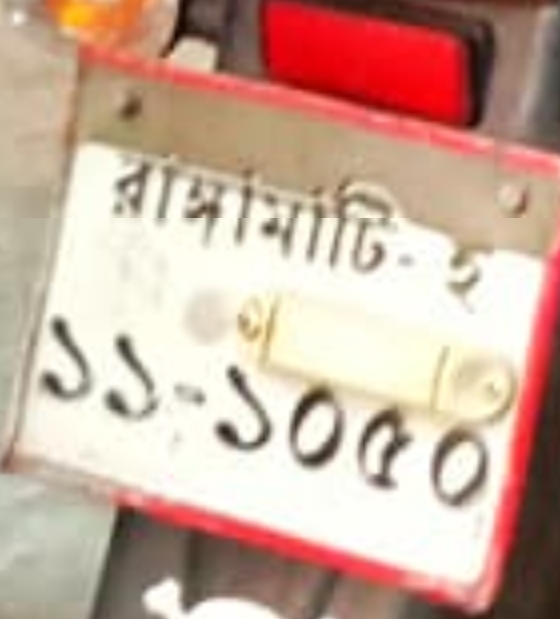 রাঙ্গামাটি- হ
১১-১০৫০